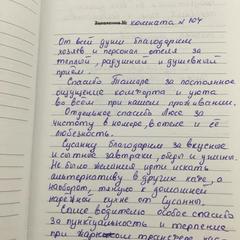 комната N 104
От всей души благодарим
хозяев и персонал отеля за
тёплый, радушный и душевный
приём.
Спасибо Тамаре за постоянное
ощущение комфорта и уюта
во всём при нашем проживании.
Отдельное спасибо Люсе за
чистоту в номере, в отеле и её
любезность.
Сусанну благодарим за вкусные
и сытные завтраки, обеды и ужины.
Не было желания идти искать
альтернативу в других кафе, а
наоборот, только к домашней
кухне от Сусанны.
Саше водителю особое спасибо
за пунктуальность и терпение
при трансфере нас